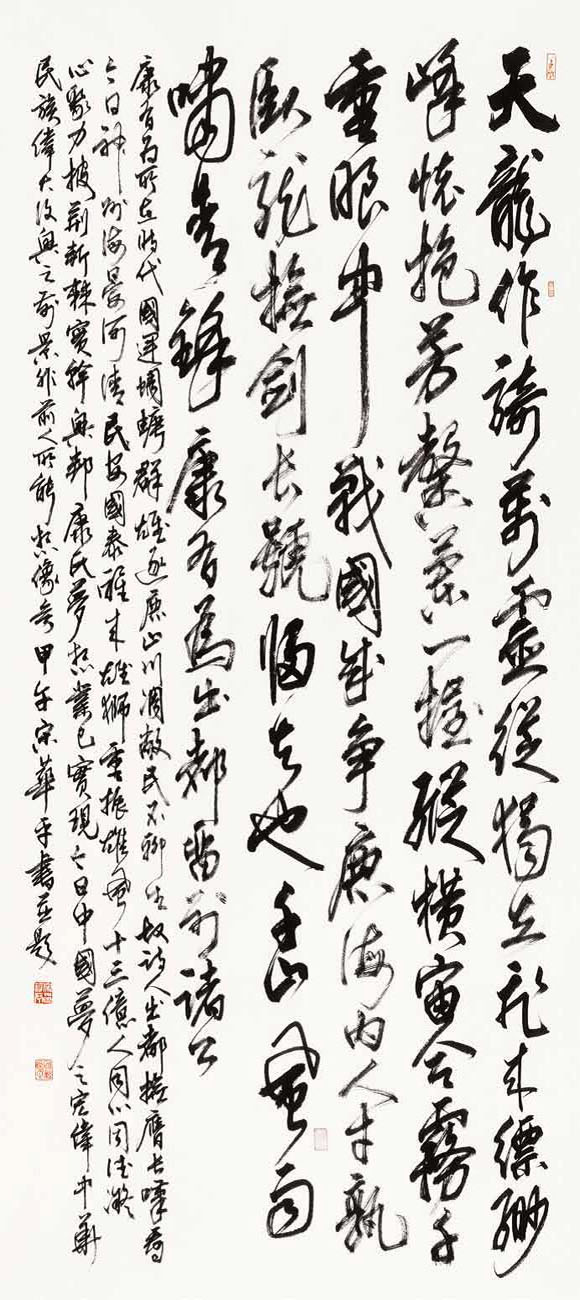 天龍作騎萬靈從獨立飛來縹緲
峰懷抱芳馨蘭一握縱橫宙合霧千
重眼中戰國成爭鹿海內人才孰
臥龍撫劍長號歸去也千山風雨
嘯青鋒康有為出都留別諸公
康有為所在時代國運蜩螗群雄逐鹿山川凋敝民不聊生故詩人出都撫膺長嘯焉
今日神州海晏河清民安國泰來雄獅重振雄風十三億人同心同德凝
心聚力披荊斬棘實幹興邦康氏夢想業已實現今日中國夢之宏偉中華
民族偉大復興之前景非前人所能想像矣甲午宋華平書並題